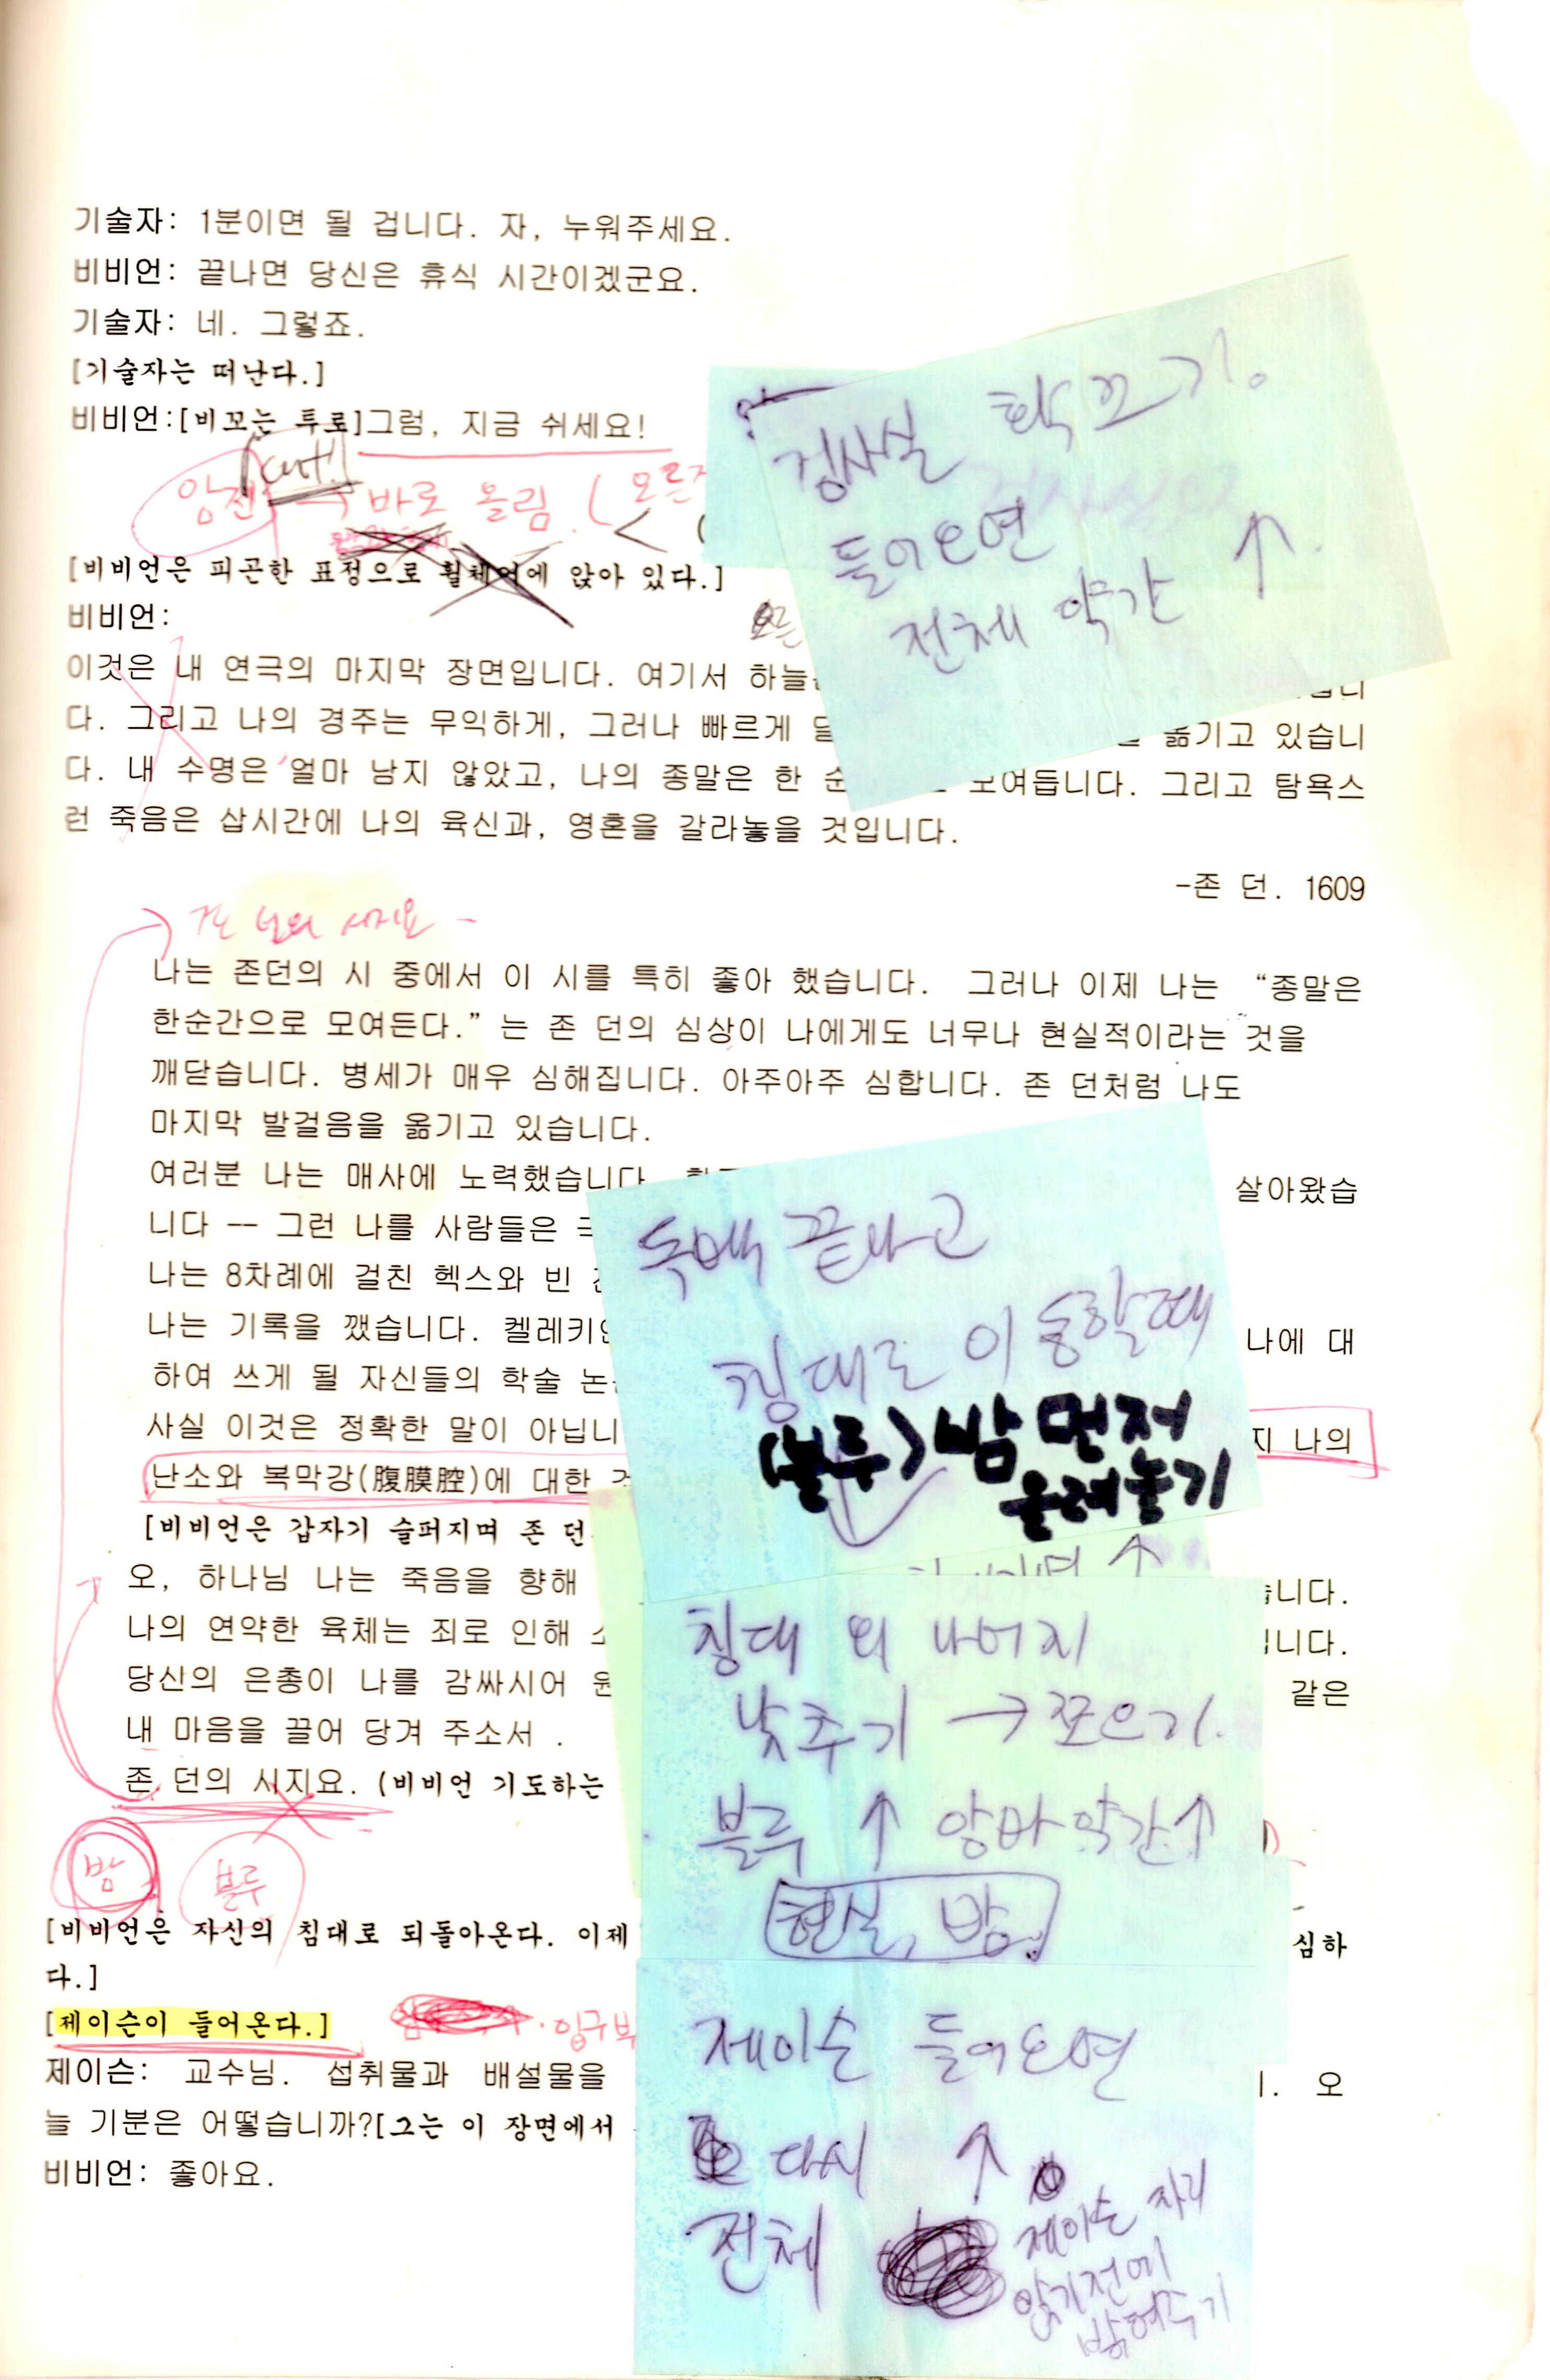 기술자: 1분이면 될 겁니다. 자, 누워주세요.
비비언: 끝나면 당신은 휴식 시간이겠군요.
기술자: 네. 그렇죠.
[기술자는 떠난다.]
비비언:[비꼬는 투로]그럼, 지금 쉬세요!
cut!
앙전 → 바로 올림.
[비비언은 피곤한 표정으로 휠체어에 앉아 있다.]
비비언:
이것은 내 연극의 마지막 장면입니다. 여기서 하늘은
다. 그리고 나의 경주는 무익하게, 그러나 빠르게 옮기고 있습니
다. 내 수명은 얼마 남지 않았고, 나의 종말은 한 모여듭니다. 그리고 탐욕스
런 죽음은 삽시간에 나의 육신과, 영혼을 갈라놓을 것입니다.
-존 던. 1609
검사실 확 끄기.
들어오면
전체 약간 ↑.
존 던의 시지요 -
나는 존던의 시 중에서 이 시를 특히 좋아 했습니다. 그러나 이제 나는 “종말은
한순간으로 모여든다.” 는 존 던의 심상이 나에게도 너무나 현실적이라는 것을
깨닫습니다. 병세가 매우 심해집니다. 아주아주 심합니다. 존 던처럼 나도
마지막 발걸음을 옮기고 있습니다.
여러분 나는 매사에 노력했습니다. 살아왔습
니다 -- 그런 나를 사람들은
나는 8차례에 걸친 헥스와 빈
나는 기록을 깼습니다. 켈레키안 나에 대
하여 쓰게 될 자신들의 학술 논
사실 이것은 정확한 말이 아닙니 지 나의
난소와 복막강(腹膜腔)에 대한
[비비언은 갑자기 슬퍼지며 존 던
오, 하나님 나는 죽음을 향해 습니다.
나의 연약한 육체는 죄로 인해 입니다.
당신의 은총이 나를 감싸시어 같은
내 마음을 끌어 당겨 주소서 .
존 던의 시지요. (비비언 기도하는
독백 끝나고
침대로 이동할때
(블루) 밤 먼저
올려놓기
침대 외 나머지
낮추기 → 쪼으기.
블루 ↑ 앙바 약간↑
현실, 밤.
밤 블루
[비비언은 자신의 침대로 되돌아온다. 이제 심하
다.]
[제이슨이 들어온다.]
제이슨: 교수님. 섭취물과 배설물을 오
늘 기분은 어떻습니까?[그는 이 장면에서
비비언: 좋아요.
제이슨 들어오면
다시 ↑
전체
제이슨 자리
앉기전에
밝혀주기